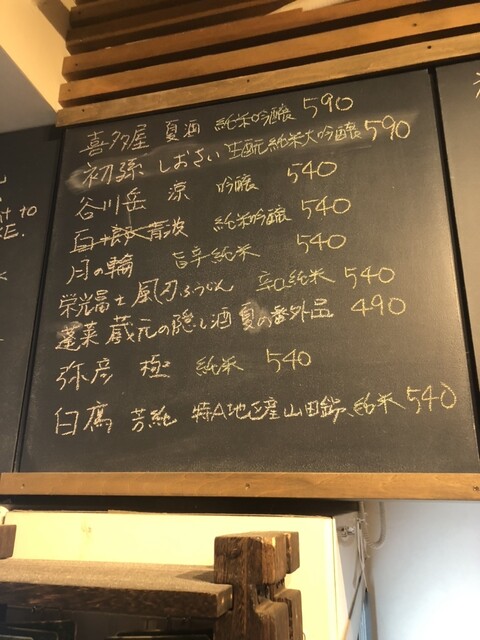 喜多屋 夏酒 純米吟醸 590
初孫 しおさい 生酛純米大吟醸 590
谷川岳 涼 吟醸 540
青波 純米吟醸 540
月の輪 旨辛純米 540
栄光冨士 風刃ふうじん 辛口純米 540
蓬莱 蔵元の隠し酒 夏の番外品 490
弥彦 極 純米 540
白鷹 芳純 特A地区産山田錦、純米 540
t to
E.